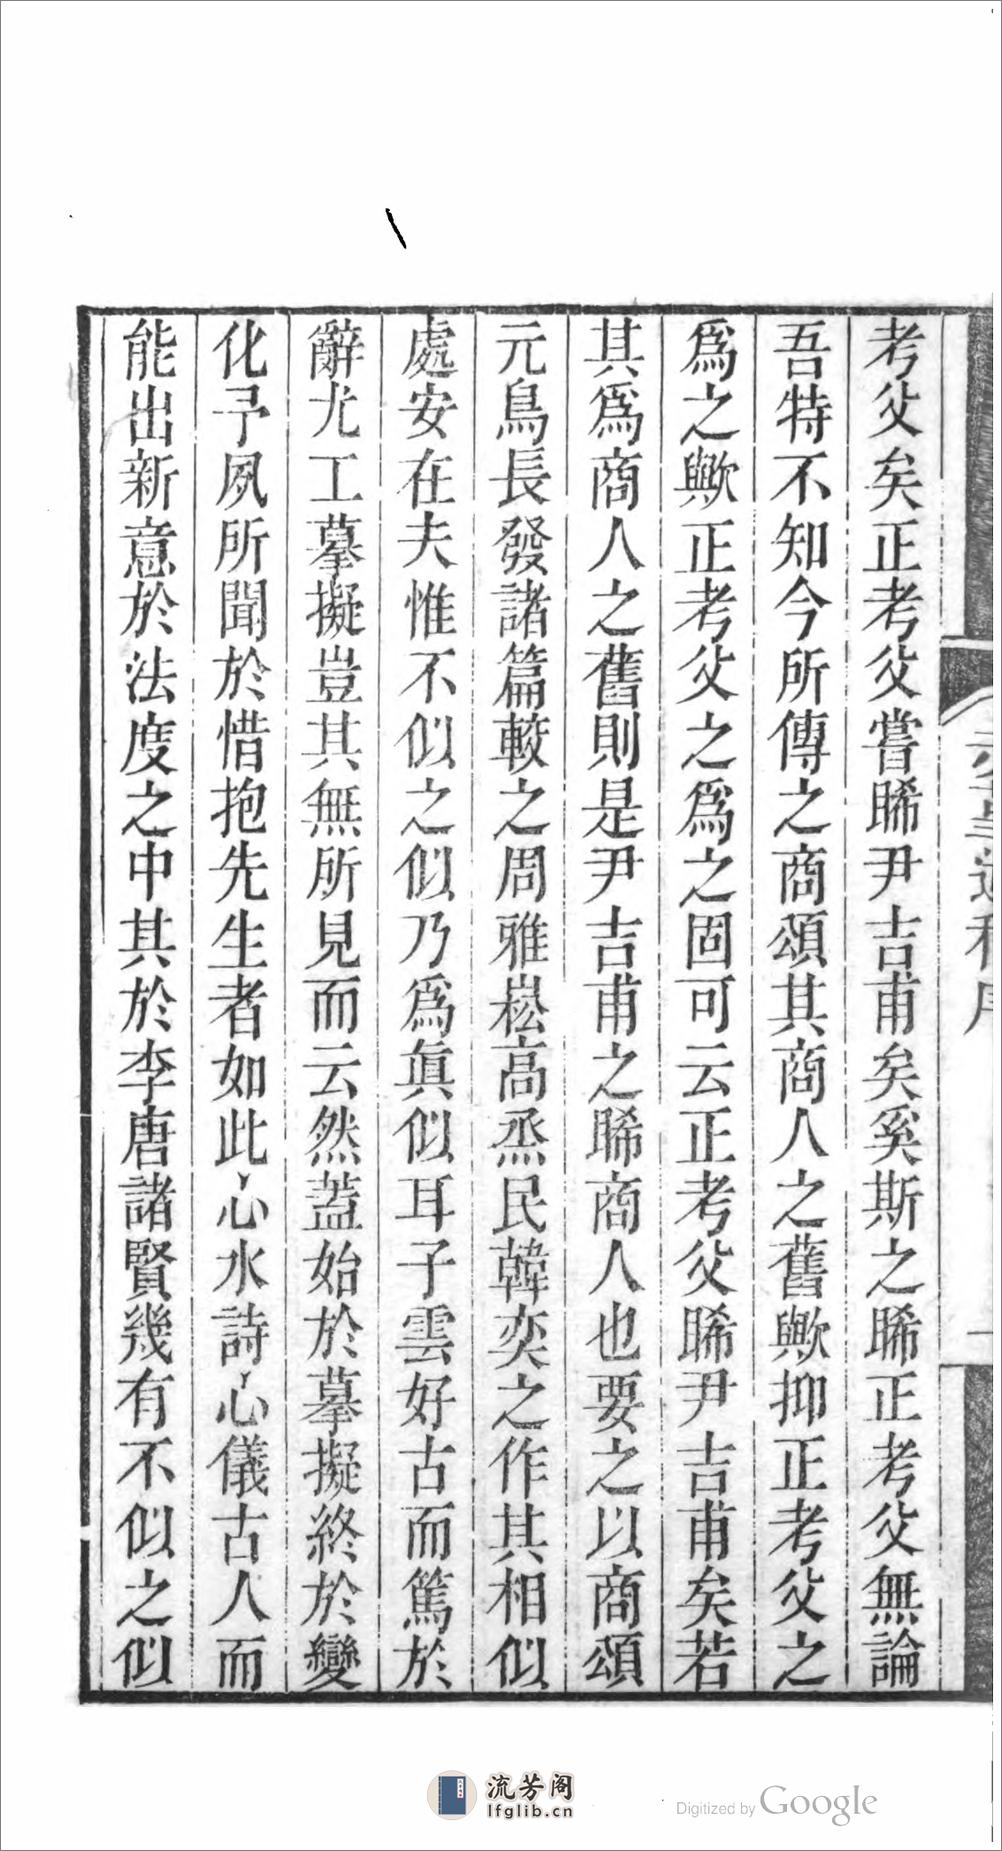 考父矣正考父嘗睎尹吉甫矣奚斯之睎正考父無論
吾特不知今所傳之商頌其商人之舊歟抑正考父之
爲之歟正考父之爲之固可云正考父睎尹吉甫矣若
其爲商人之舊則是尹吉甫之睎商人也要之以商頌
元鳥長發諸篇較之周雅崧高烝民韓奕之作其相似
處安在夫惟不似之似乃爲眞似耳子雲好古而篤於
辭尤工摹擬豈其無所見而云然蓋始於摹擬終於變
化予夙所聞於惜抱先生者如此心水詩心儀古人而
能出新意於法度之中其於李唐諸賢幾有不似之似
流芳阁
lfglib.cn
Digitized by Google